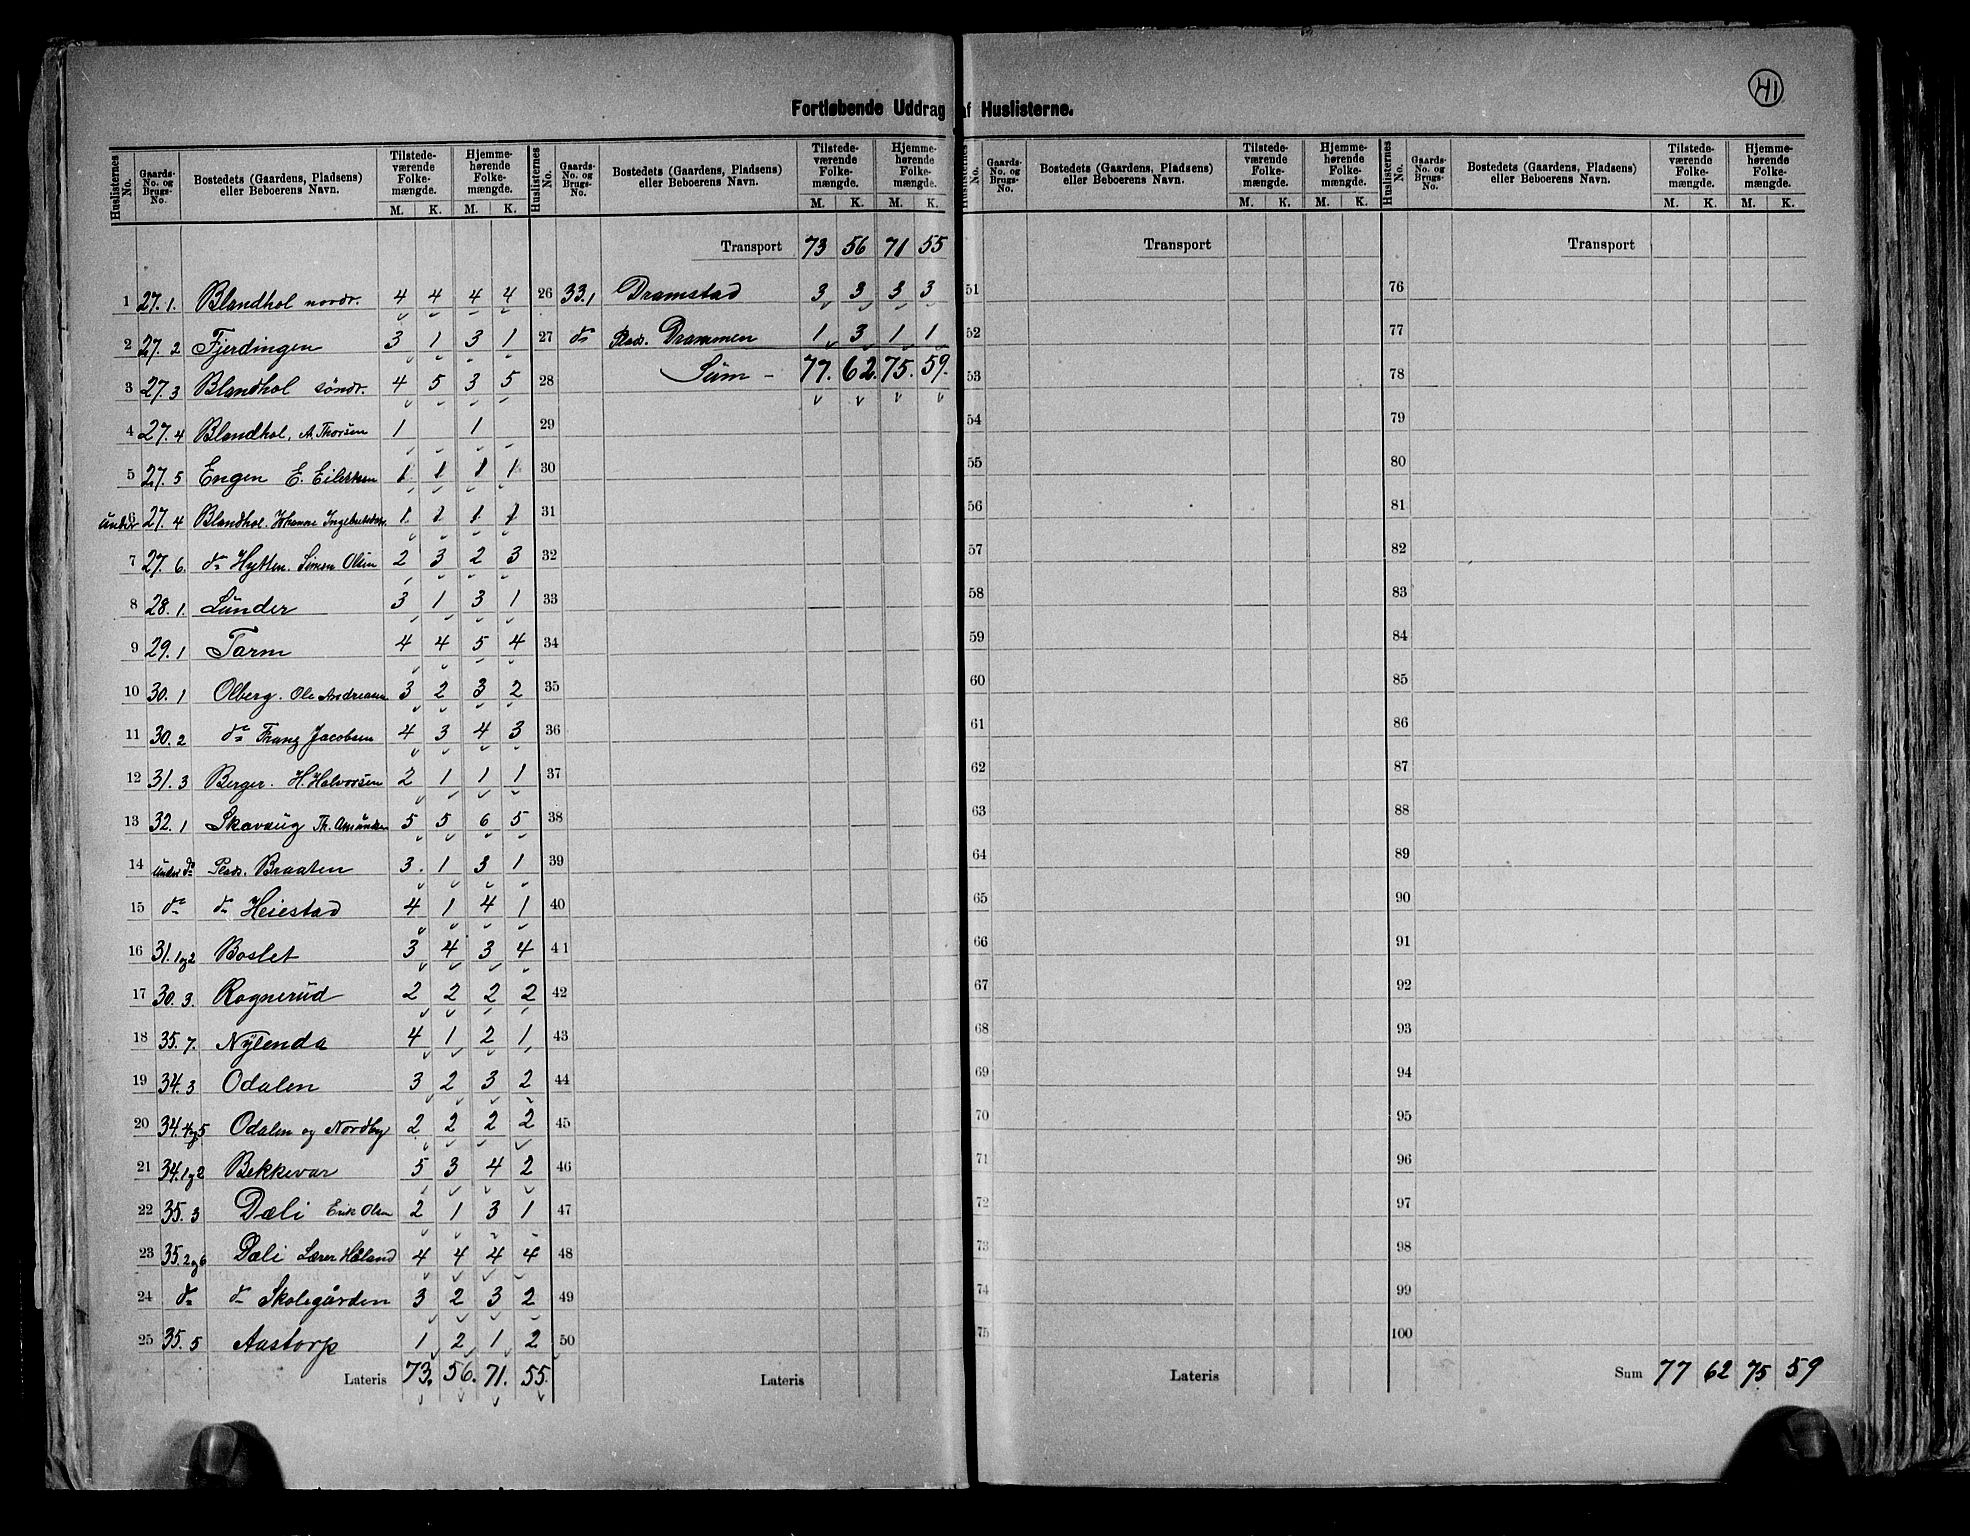 41
Fortløbende Uddrag af Huslisterne.
Huslisternes No. | Gaards-No. og Brugs-No. | Bostedets (Gaardens, Pladsens) eller Beboerens Navn. | Tilstedeværende Folkemængde. M. K. | Hjemmehørende Folkemængde. M. K.
1 27.1. Blandhol nordr. 4 4 4 4
2 27.2 Fjerdingen 3 1 3 1
3 27.3 Blandhol søndr. 4 5 3 5
4 27.4 Blandhol, A. Thorsen 1 1
5 27.5 Engen E. Eilertsen 1 1 1 1
6 under 27.4 Blandhol. Johanne Ingebretsdtr. 1 1 1 1
7 27.6. do Hytten. Simen Olsen 2 3 2 3
8 28.1. Lunder 3 1 3 1
9 29.1 Tarm 4 4 5 4
10 30.1 Olberg. Ole Andreasen 3 2 3 2
11 30.2 do Franz Jacobsen 4 3 4 3
12 31.3 Berger. H. Halvorsen 2 1 1 1
13 32.1 Skavaug Th. Amundsen 5 5 6 5
14 under do Plads. Braaten 3. 1 3 1
15 do do Heiestad 4 1 4 1
16 31.1og2 Boslet 3 4 3 4
17 30.3. Rognerud 2 2 2 2
18 35.7. Nylenda 4 1 2 1
19 34.3 Odalen 3 2 3 2
20 34.4og5 Odalen og Nordby 2 2 2 2
21 34.1og2 Bekkevar 5 3 4 2
22 35.3 Dæli Erik Olsen 2 1 3 1
23 35.2og6 Dæli Lærer Håland 4 4 4 4
24 do do Skolegården 3 2 3 2
25 35.5 Aastorp 1 2 1 2
Lateris 73. 56. 71. 55.
Huslisternes No. | Gaards-No. og Brugs-No. | Bostedets (Gaardens, Pladsens) eller Beboerens Navn. | Tilstedeværende Folkemængde. M. K. | Hjemmehørende Folkemængde. M. K.
Transport 73 56 71 55
26 33.1 Dramstad 3 3 3 3
27 do Plads. Drammen 1 3 1 1
28 Sum - 77. 62. 75. 59.
29
30
31
32
33
34
35
36
37
38
39
40
41
42
43
44
45
46
47
48
49
50
Lateris
Huslisternes No. | Gaards-No. og Brugs-No. | Bostedets (Gaardens, Pladsens) eller Beboerens Navn. | Tilstedeværende Folkemængde. M. K. | Hjemmehørende Folkemængde. M. K.
Transport
51
52
53
54
55
56
57
58
59
60
61
62
63
64
65
66
67
68
69
70
71
72
73
74
75
Lateris
Huslisternes No. | Gaards-No. og Brugs-No. | Bostedets (Gaardens, Pladsens) eller Beboerens Navn. | Tilstedeværende Folkemængde. M. K. | Hjemmehørende Folkemængde. M. K.
Transport
76
77
78
79
80
81
82
83
84
85
86
87
88
89
90
91
92
93
94
95
96
97
98
99
100
Sum 77 62 75 59